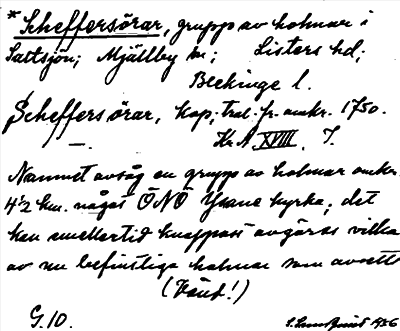 * Scheffersörar, grupp av holmar i
Saltsjön; Mjällby sn; Listers hd;
Blekinge l.
Scheffersörar, kop; trol. fr. omkr. 1750.
Kr. A XVIII, 7.
Namnet avsåg en grupp av holmar omkr.
4½ km. något ÖNÖ Ysane kyrka; det
kan emellertid knappast avgöras vilka
av nu befintliga holmar som avsetts
(Vänd!)
G. 10. 1956